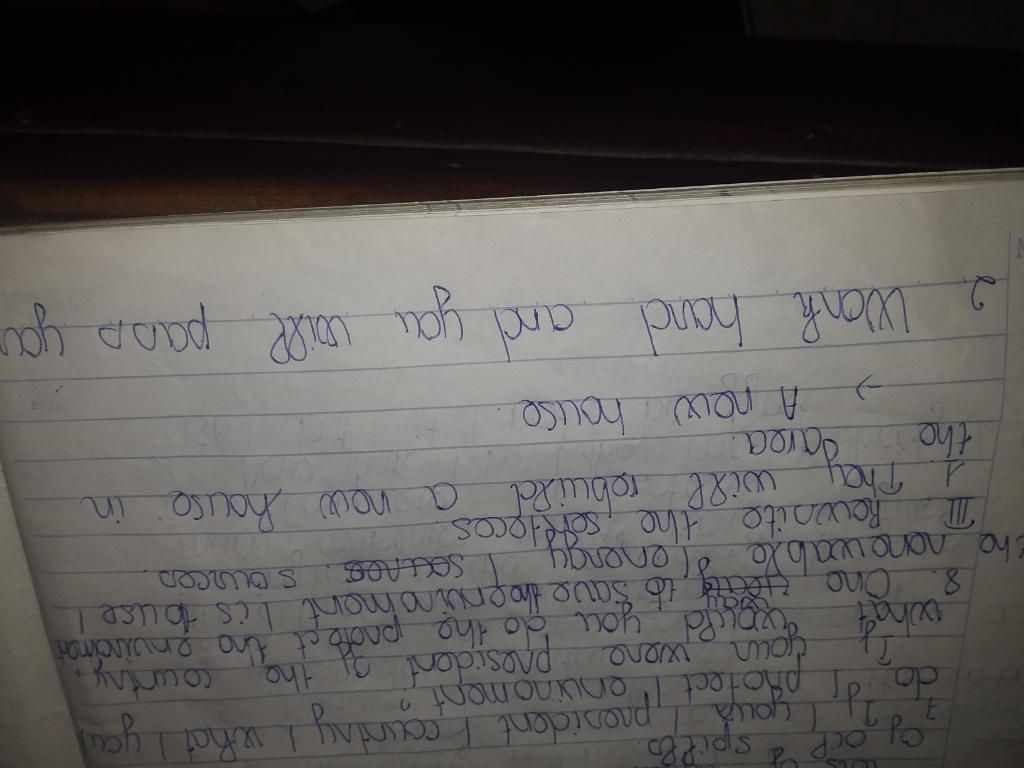 of oil spills.
7. If / your / president / country / what / you
do / of / protect / enviroment?
If your were president of the country,
what would you do the protect the enviroment
8. One way to save the enviroment / is to use /
the renewable / of energy / sources.
III Rewrite the senteces.
1. They will rebuild a new house in
the area.
→ A new house
2. Work hard and you will pass you